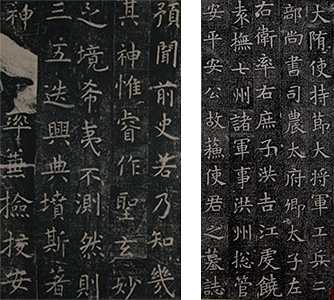 預聞前史若乃知幾
其神惟睿作聖玄妙
之境希夷不測然則
三五迭興典墳斯著
神
率兼撿挍安
大隋使持節大將軍工兵二
部尚書司農太府卿太子左
右衛率右庶子洪吉江虔饒
袁撫七州諸軍事洪州揔管
安平安公故蘇使君之墓誌